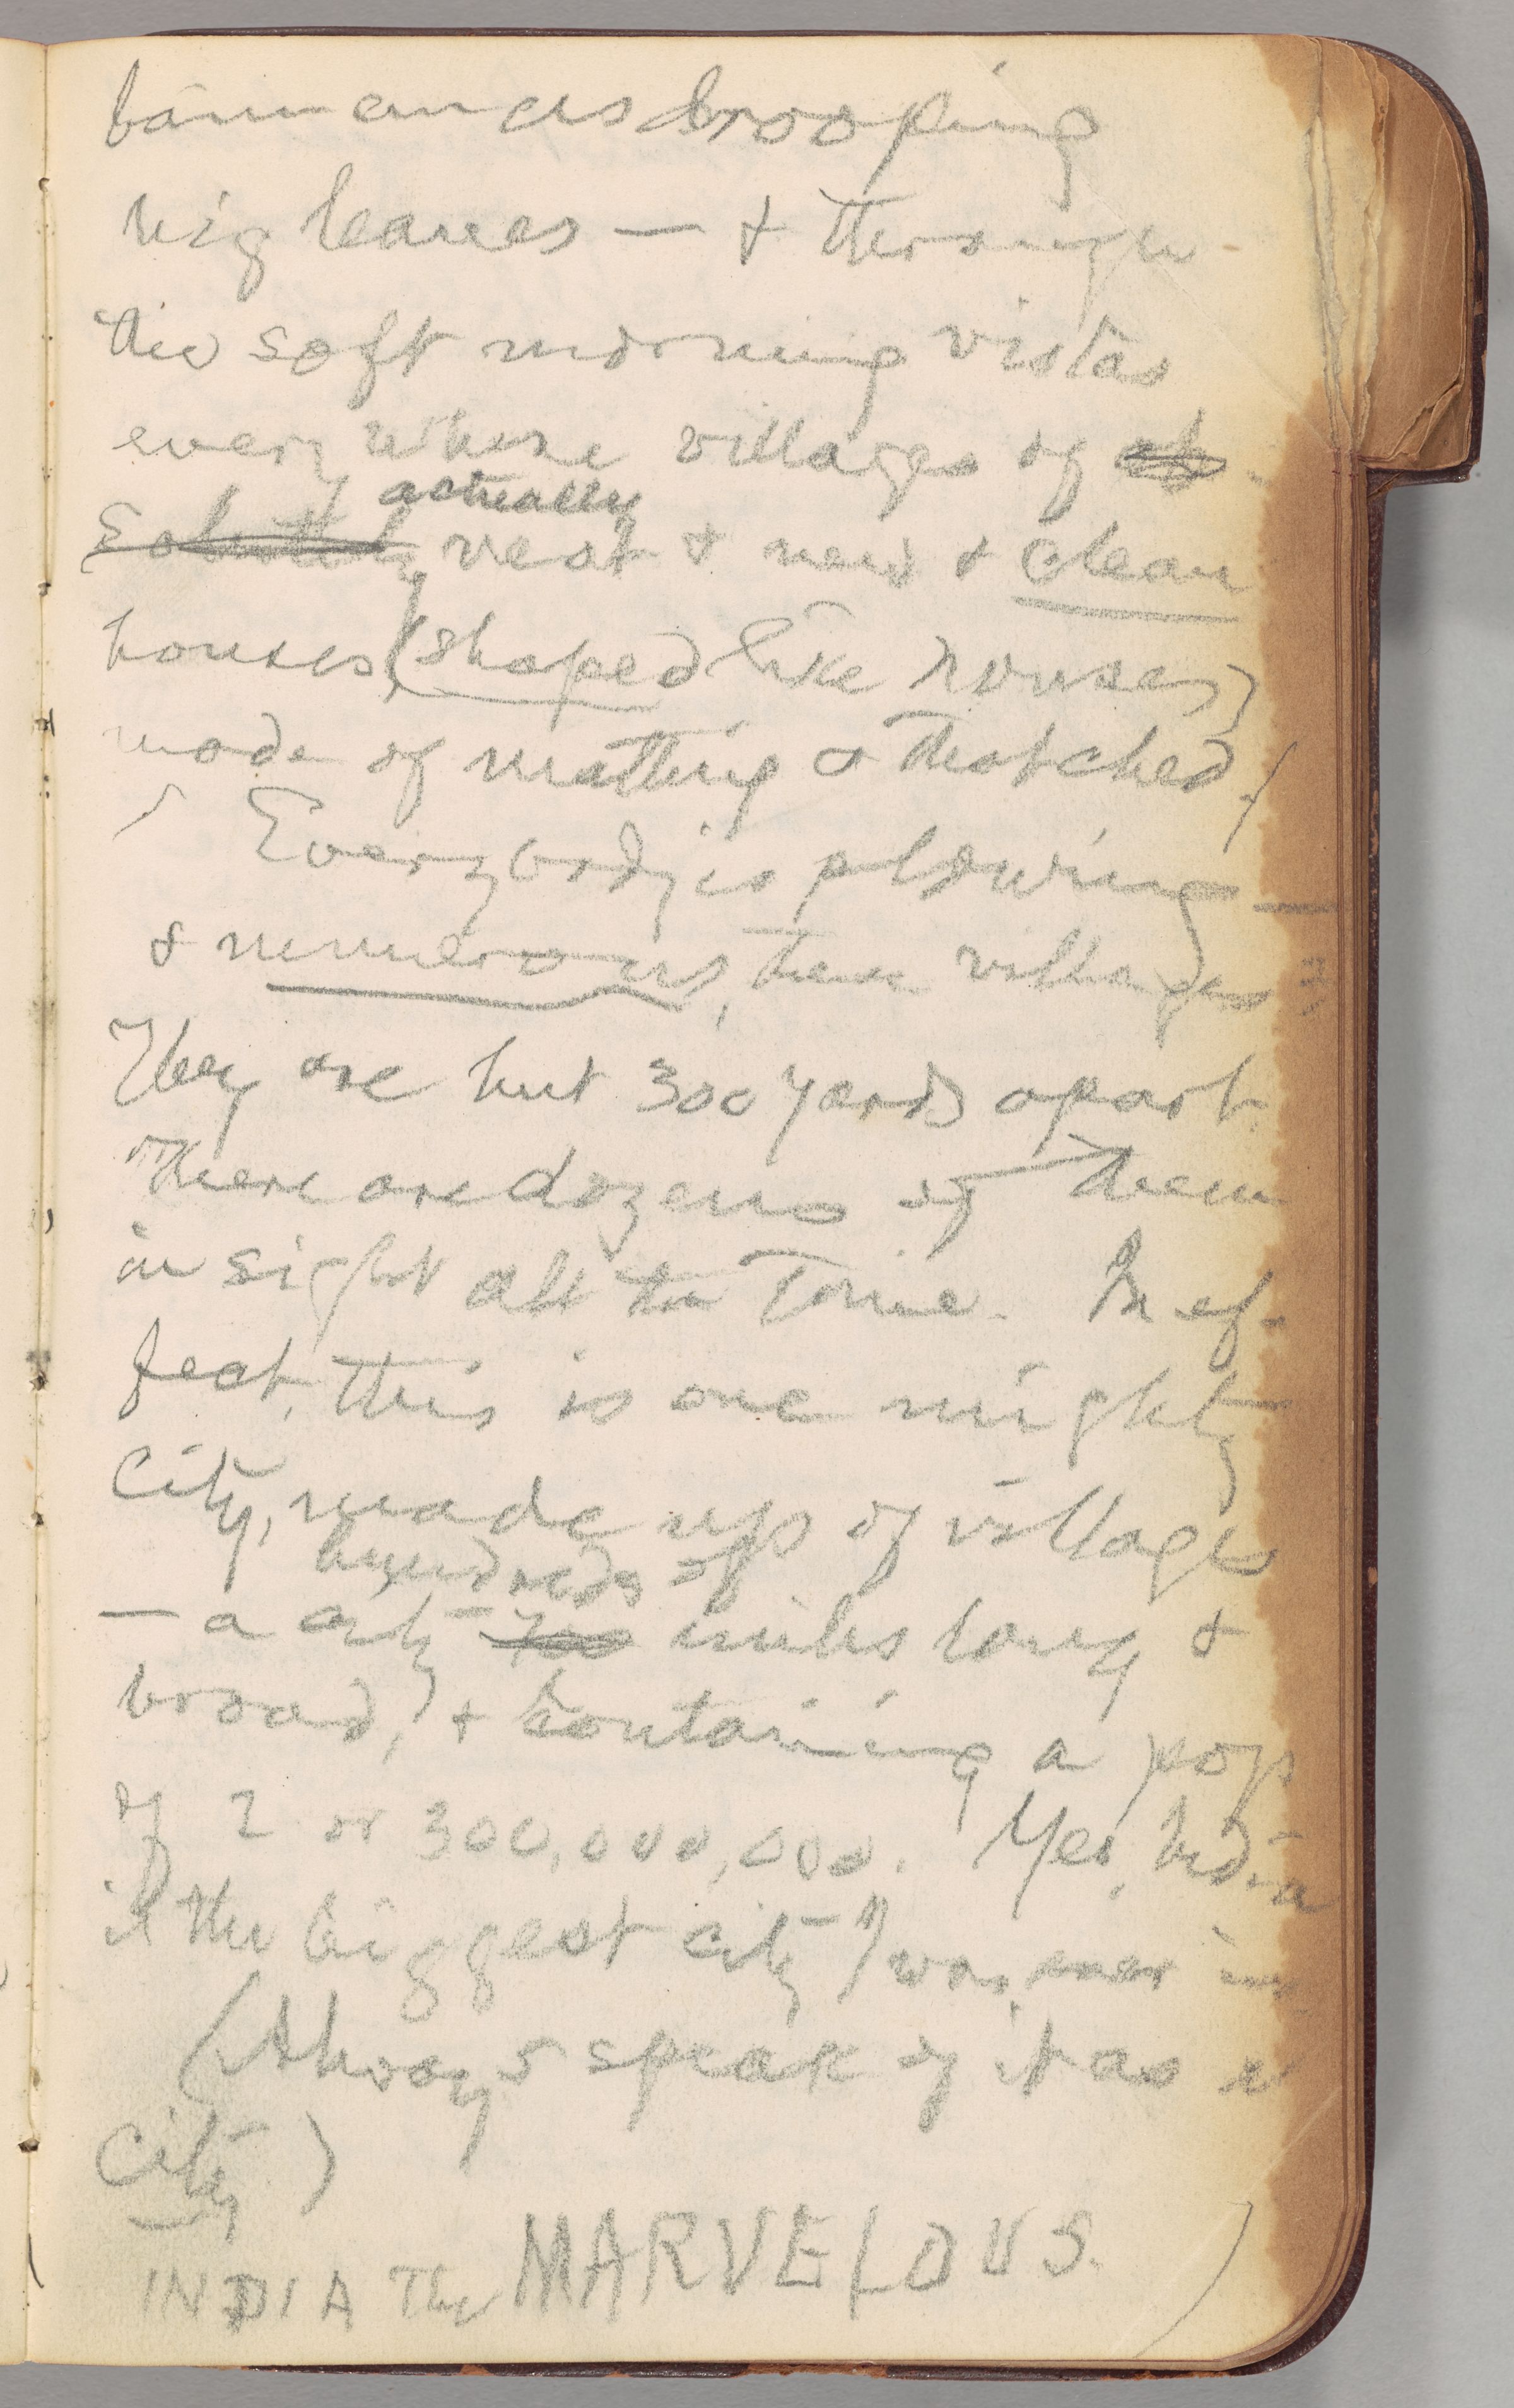 bananas drooping
big leaves — & through
the soft morning vistas
everywhere villages of ab-
solutely actually neat & new & clean
houses, (shaped like houses)
made of matting & thatched.
Everybody is plowing —
& numerous, these villages
They are but 300 yards apart.
There are dozens of them
in sight all the time. In ef-
fect, this is one mighty
City, made up of villages
— a city 700 hundreds of miles long &
broad, & containing a pop
of 2 or 300,000,000. Yes, India
is the biggest city I was ever in.
(Always speak of it as a
City)
INDIA The MARVELOUS.